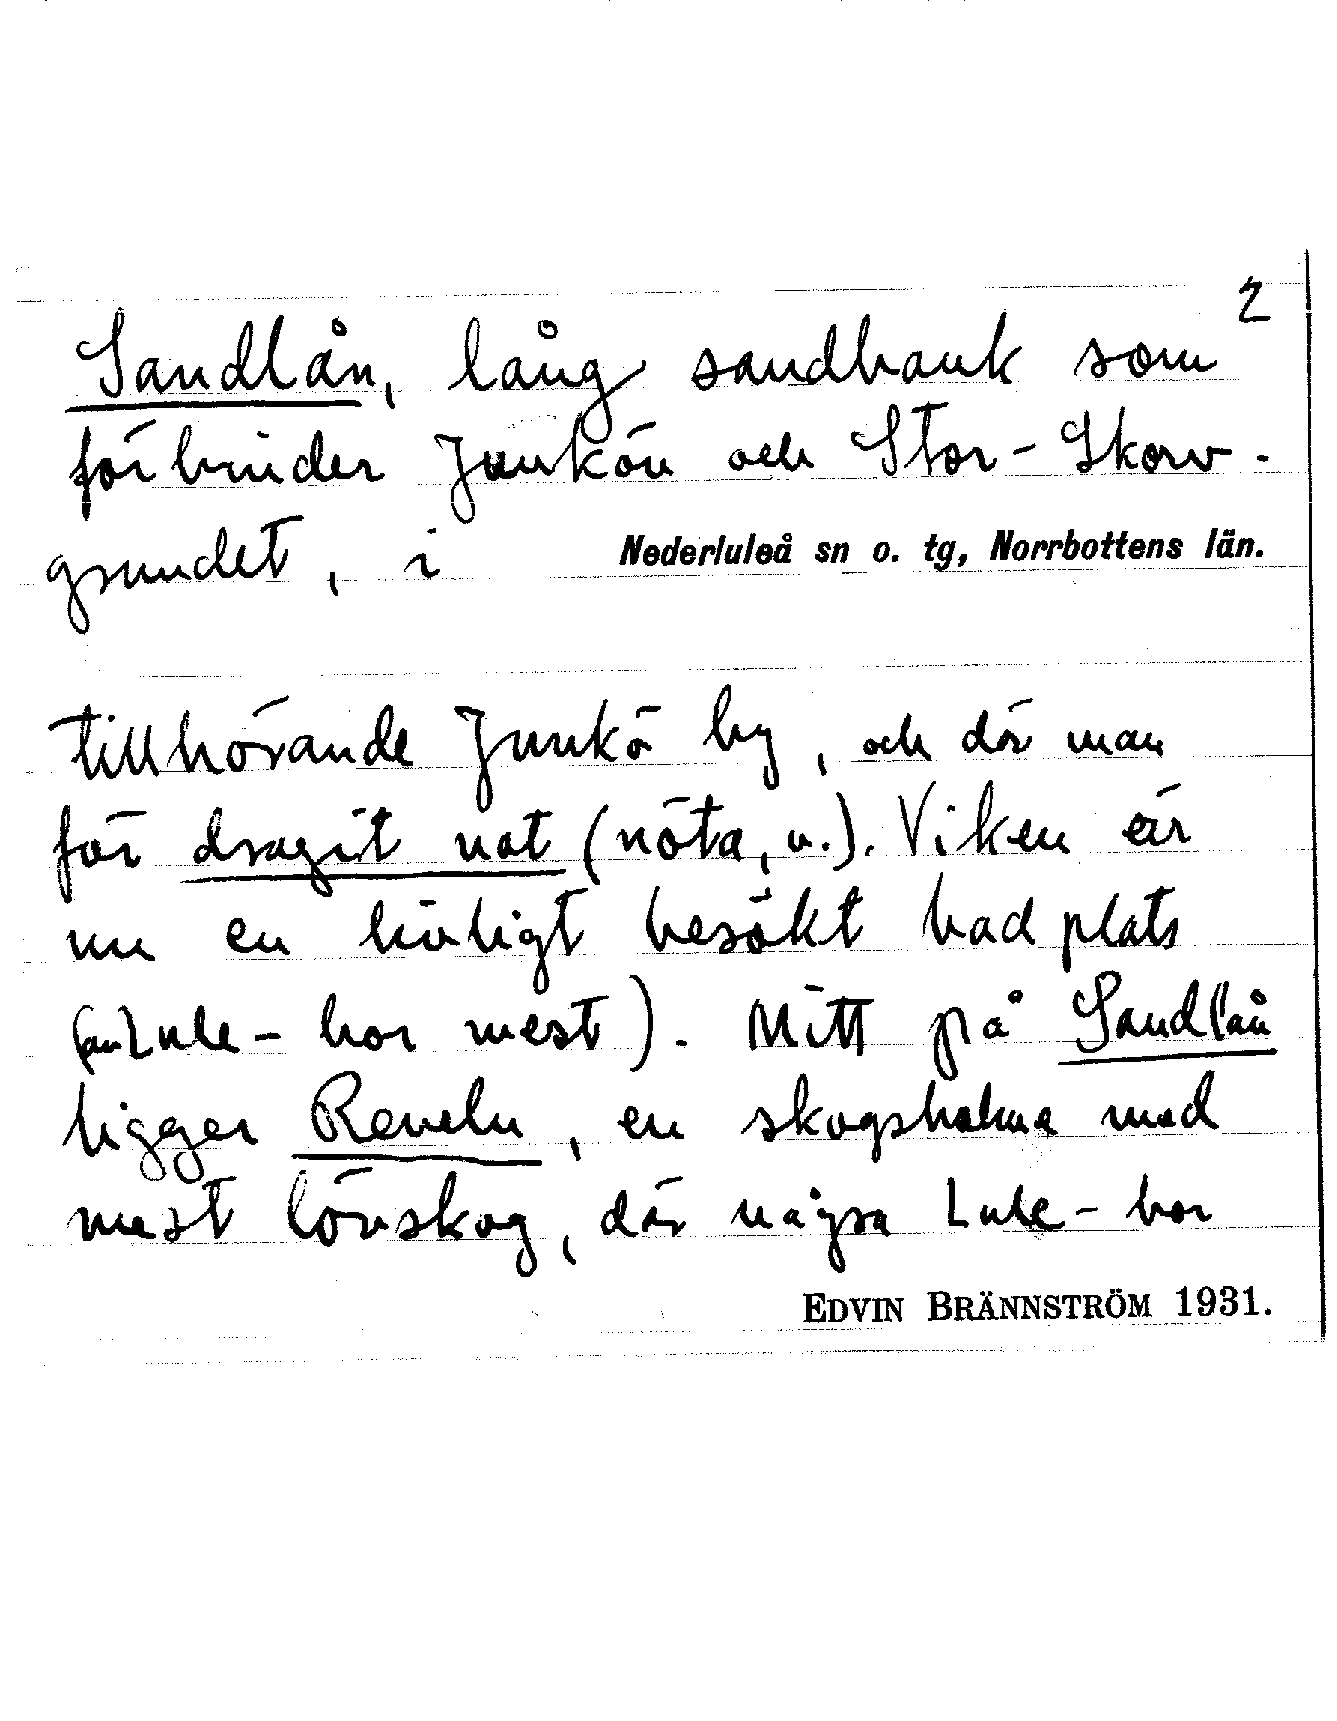 2
Sandlån, lång sandbank som
förbinder Junkön och Stor-Skorv-
grundet, i Nederluleå sn o. tg, Norrbottens län.
tillhörande Junkö by, och där man
för dragit not (nöta, v.). Viken är
nu en livligt besökt badplats
(av Lule-bor mest). Mitt på Sandlån
ligger Reveln, en skogsholme med
mest lövskog, där några Lule-bor
EDVIN BRÄNNSTRÖM 1931.